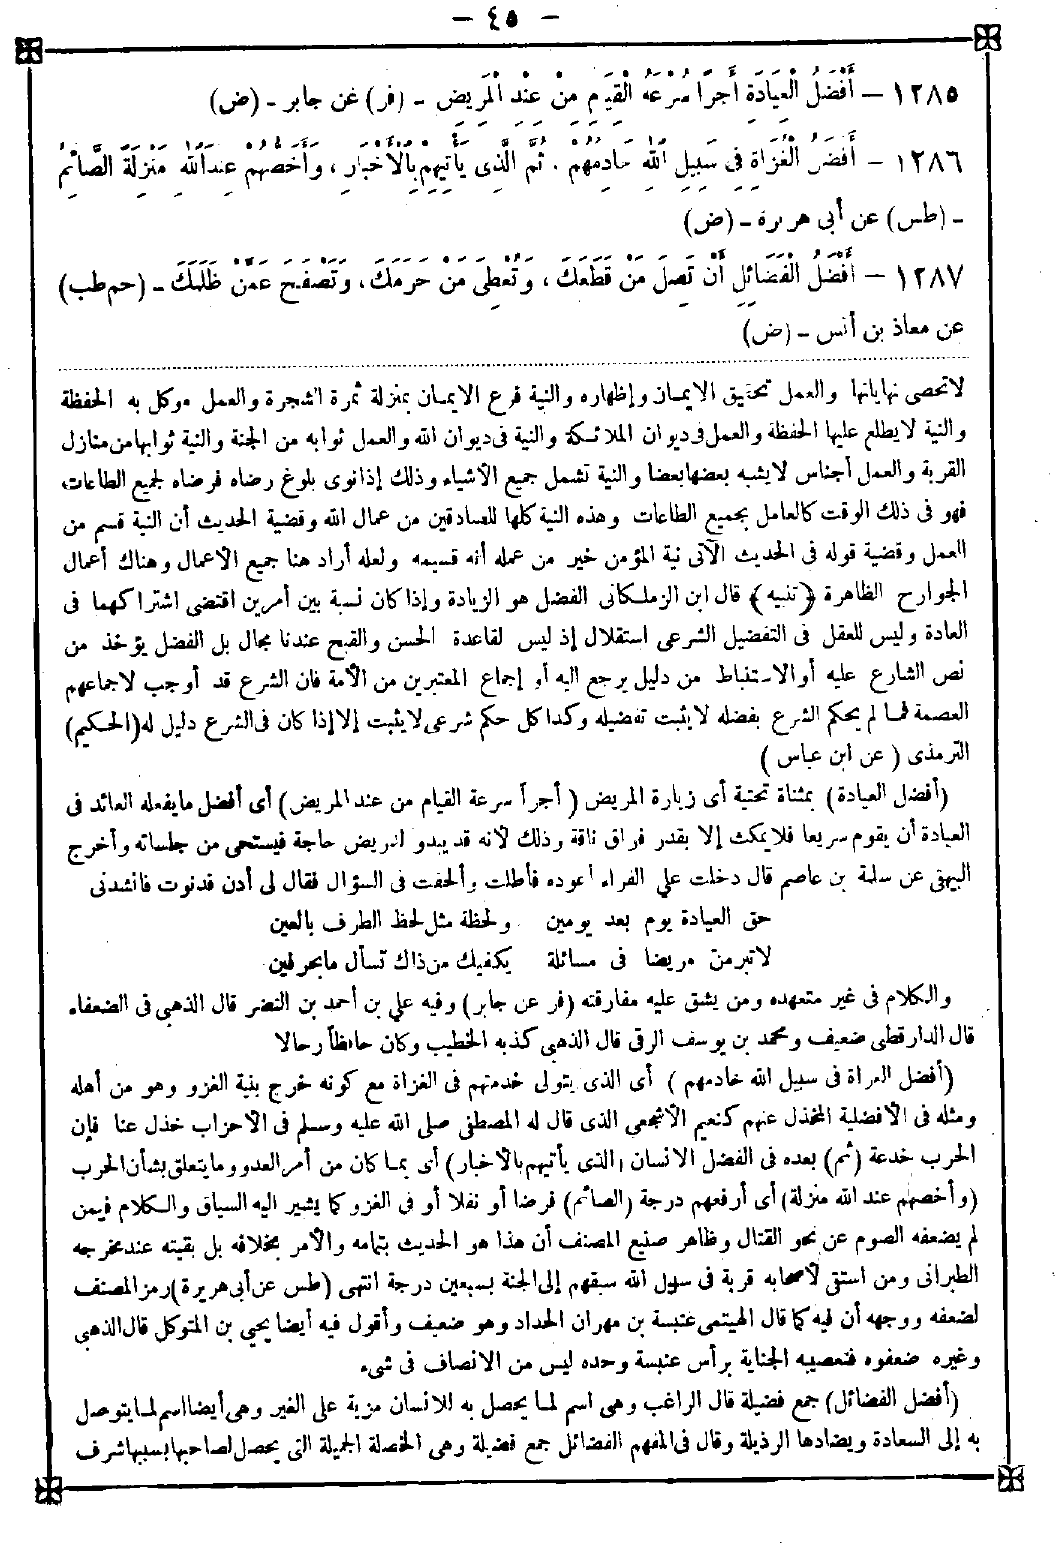 - ٤٥ -
١٢٨٥ - أَفْضَلُ الْعِيَادَةِ أَجْرًا سُرْعَةُ الْقِيَامِ مِنْ عِنْدِ الْمَرِيضِ - (فر) عن جابر - (ض)
١٢٨٦ - أَفْضَلُ الْغُزَاةِ فِى سَبِيلِ اللهِ خَادِمُهُمْ . ثُمَّ الَّذِى يَأْتِيهِمْ بِالْأَخْبَارِ ، وَأَخَصُّهُمْ عِنْدَاللهِ مَنْزِلَةً الصَّائِمُ
- (طس) عن أبى هريرة - (ض)
١٢٨٧ - أَفْضَلُ الْفَضَائِلِ أَنْ تَصِلَ مَنْ قَطَعَكَ ، وَتُعْطِىَ مَنْ حَرَمَكَ ، وَتَصْفَحَ عَمَّنْ ظَلَمَكَ - (حم طب)
عن معاذ بن أنس - (ض)
لاتحصى نهاياتها والعمل تحقيق الايمان وإظهاره والنية فرع الايمان بمنزلة ثمرة الشجرة والعمل موكل به الحفظة
والنية لايطلع عليها الحفظة والعمل فى ديوان الملائكة والنية فى ديوان الله والعمل ثوابه من الجنة والنية ثوابها من منازل
القربة والعمل أجناس لايشبه بعضها بعضا والنية تشمل جميع الأشياء وذلك إذا نوى بلوغ رضاه فرضاه لجميع الطاعات
فهو فى ذلك الوقت كالعامل بجميع الطاعات وهذه النية كلها للصادقين من عمال الله وقضية الحديث أن النية قسم من
العمل وقضية قوله فى الحديث الآتى نية المؤمن خير من عمله أنه قسيمه ولعله أراد هنا جميع الأعمال وهناك أعمال
الجوارح الظاهرة (تنبيه) قال ابن الزملكانى الفضل هو الزيادة وإذا كان نسبة بين أمرين اقتضى اشتراكهما فى
العادة وليس للعقل فى التفضيل الشرعى استقلال إذ ليس لقاعدة الحسن والقبح عندنا مجال بل الفضل يؤخذ من
نص الشارع عليه أو الاستنباط من دليل يرجع اليه أو إجماع المعتبرين من الأمة فان الشرع قد أوجب لاجماعهم
العصمة فما لم يحكم الشرع بفضله لايثبت تفضيله وكذا كل حكم شرعى لايثبت إلا إذا كان فى الشرع دليل له (الحكيم)
الترمذى ( عن ابن عباس )
(أفضل العيادة) بمثناة تحتية أى زيارة المريض ( أجراً سرعة القيام من عند المريض) أى أفضل مايفعله العائد فى
العيادة أن يقوم سريعا فلا يمكث إلا بقدر فراق ناقة وذلك لأنه قد يبدو للمريض حاجة فيستحى من جلسائه وأخرج
البيهقى عن سلمة بن عاصم قال دخلت على الفراء أعوده فأطلت وألحفت فى السؤال فقال لى أدن فدنوت فانشدنى
حق العيادة يوم بعد يومين ولحظة مثل لحظ الطرف بالعين
لاتبرمن مريضا فى مسائلة يكفيك من ذاك تسأل مابحرفين
والكلام فى غير متعهده ومن يشق عليه مفارقته (فر عن جابر) وفيه على بن أحمد بن النضر قال الذهبى فى الضعفاء
قال الدارقطى ضعيف ومحمد بن يوسف الرقى قال الذهبى كذبه الخطيب وكان حافظاً رحالا
(أفضل الغزاة فى سبيل الله خادمهم ) أى الذى يتولى خدمتهم فى الغزاة مع كونه خرج بنية الغزو وهو من أهله
ومثله فى الأفضلية المخذل عنهم كنعيم الأشجعى الذى قال له المصطفى صلى الله عليه وسلم فى الأحزاب خذل عنا فإن
الحرب خدعة (ثم) بعده فى الفضل الانسان (الذى يأتيهم بالأخبار) أى بما كان من أمر العدو وما يتعلق بشأن الحرب
(وأخصهم عند الله منزلة) أى أرفعهم درجة (الصائم) فرضا أو نفلا أو فى الغزو كما يشير اليه السياق والكلام فيمن
لم يضعفه الصوم عن نحو القتال وظاهر صنيع المصنف أن هذا هو الحديث بتمامه والأمر بخلافه بل بقيته عند مخرجه
الطبرانى ومن استقى لأصحابه قربة فى سبيل الله سبقهم إلى الجنة بسبعين درجة انتهى (طس عن أبى هريرة) رمز المصنف
لضعفه ووجهه أن فيه كما قال الهيتمى عنبسة بن مهران الحداد وهو ضعيف وأقول فيه أيضا يحيى بن المتوكل قال الذهبى
وغيره ضعفوه فتعصيبه الجناية برأس عنبسة وحده ليس من الانصاف فى شىء
(أفضل الفضائل) جمع فضيلة قال الراغب وهى اسم لما يحصل به للانسان مزية على الغير وهى أيضا اسم لما يتوصل
به إلى السعادة ويضادها الرذيلة وقال فى المفهم الفضائل جمع فضيلة وهى الخصلة الجميلة التى يحصل لصاحبها بسببها شرف